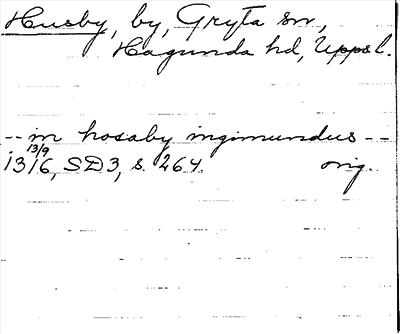 Husby, by, Gryta sn,
Hagunda hd, Uppsl.
-- in hosaby ingimundus --
13/9
1316, SD3, s. 264. orig.